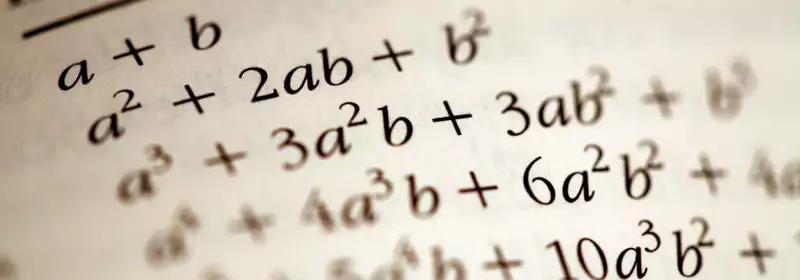 a + b
a² + 2ab + b²
a³ + 3a²b + 3ab² + b³
a⁴ + 4a³b + 6a²b² + 4a
5a⁴b + 10a³b² +